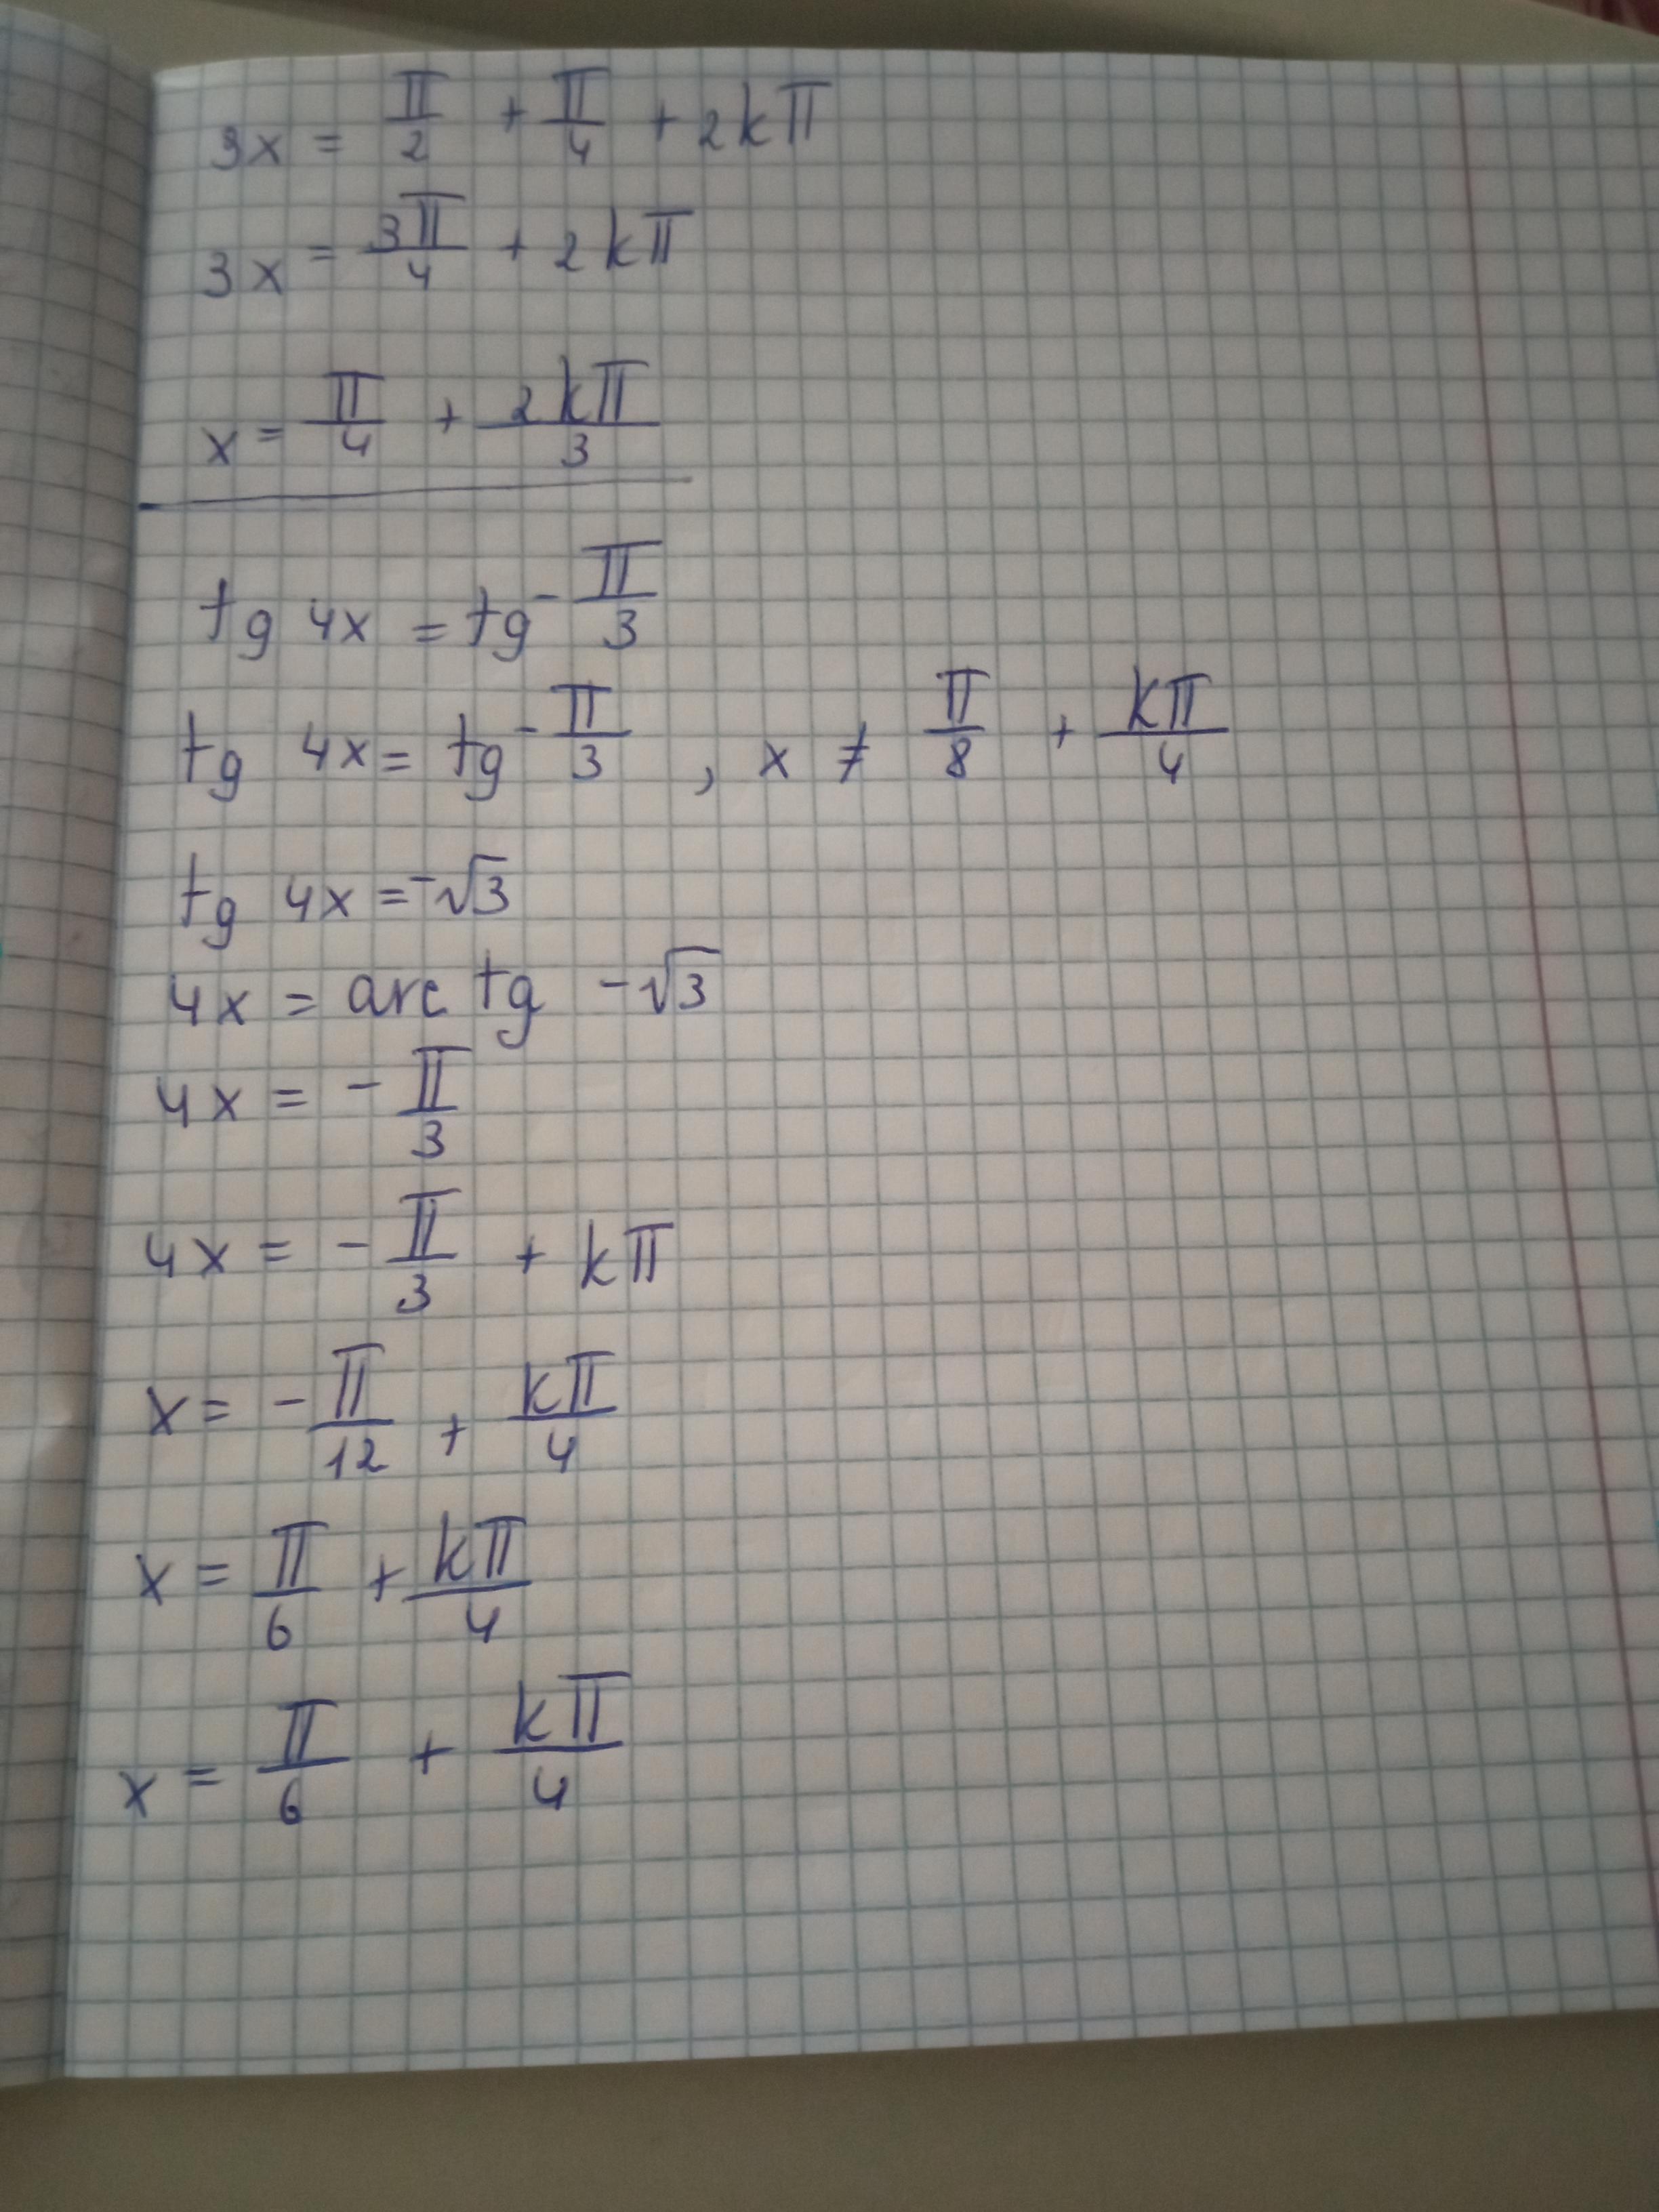 3x = π/2 + π/4 + 2kπ
3x = 3π/4 + 2kπ
x = π/4 + 2kπ/3
tg 4x = tg - π/3
tg 4x = tg - π/3 , x ≠ π/8 + kπ/4
tg 4x = -√3
4x = arc tg -√3
4x = - π/3
4x = - π/3 + kπ
x = - π/12 + kπ/4
x = π/6 + kπ/4
x = π/6 + kπ/4